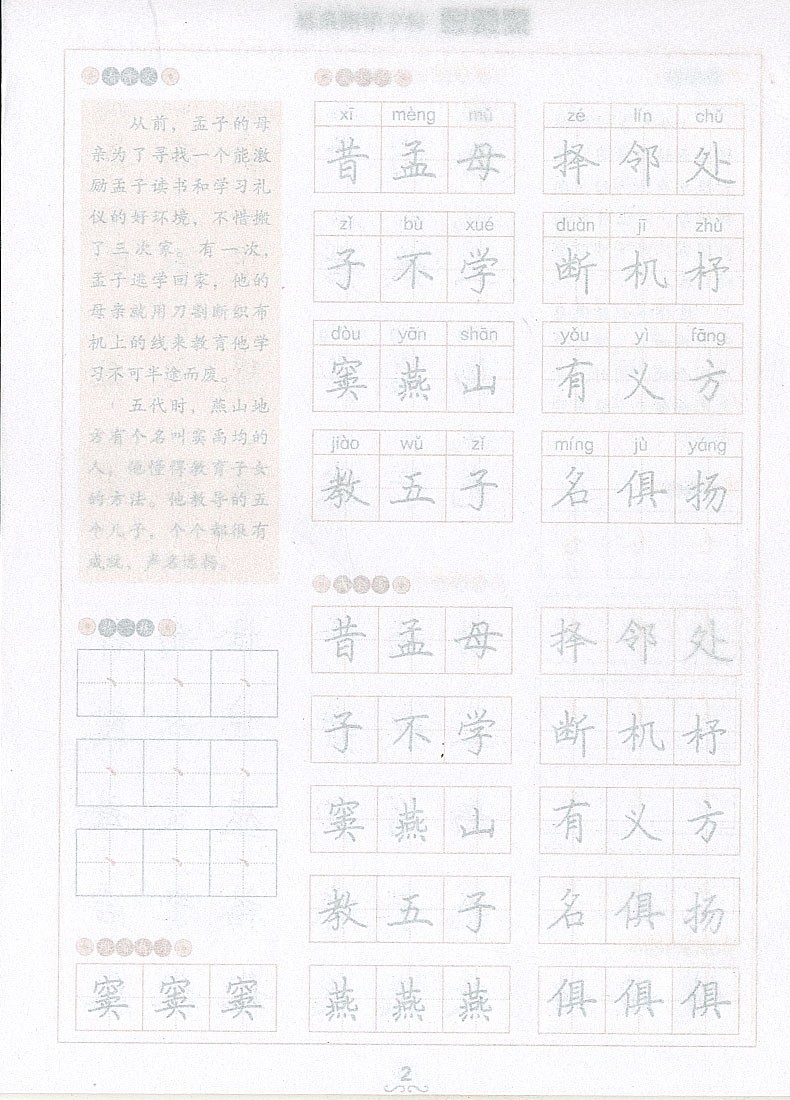 看译文
从前，孟子的母
亲为了寻找一个能激
励孟子读书和学习礼
仪的好环境，不惜搬
了三次家。有一次，
孟子逃学回家，他的
母亲就用刀割断织布
机上的线来教育他学
习不可半途而废。
五代时，燕山地
方有个名叫窦禹钧的
人，他懂得教育子女
的方法。他教导的五
个儿子，个个都很有
成就，声名远扬。
xī mèng mǔ zé lín chǔ
昔孟母 择邻处
zǐ bù xué duàn jī zhù
子不学 断机杼
dòu yān shān yǒu yì fāng
窦燕山 有义方
jiào wǔ zǐ míng jù yáng
教五子 名俱扬
昔孟母 择邻处
子不学 断机杼
窦燕山 有义方
教五子 名俱扬
窦窦窦 燕燕燕 俱俱俱
2